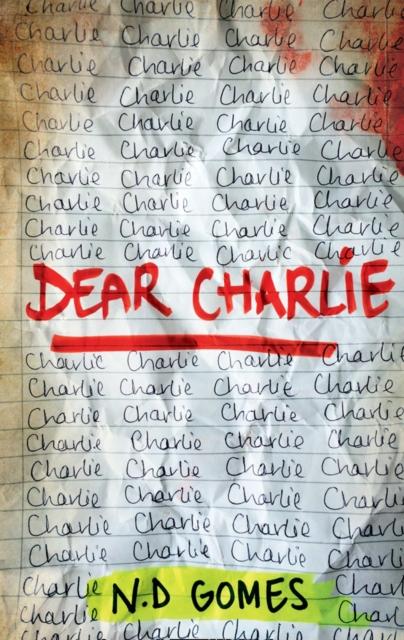 Charlie Charlie Charlie Charlie
Charlie Charlie Charlie Charlie
Charlie Charlie Charlie Charlie
Charlie Charlie Charlie Charlie
Charlie Charlie Charlie Charlie
Charlie Charlie Charlie Charlie
Charlie Charlie Charlie Charlie
Charlie Charlie Charlie Charlie
Charlie Charlie Charlie Charlie
Charlie Charlie Charlie Charlie
DEAR CHARLIE
Charlie Charlie Charlie Charlie
Charlie Charlie Charlie Charlie
Charlie Charlie Charlie Charlie
Charlie Charlie Charlie Charlie
Charlie Charlie Charlie Charlie
Charlie Charlie Charlie Charlie
Charlie Charlie Charlie Charlie
Charlie Charlie Charlie Charlie
Charlie Charl
N.D GOMES
Charlie Charl
Charlie Charlie Charlie Charl